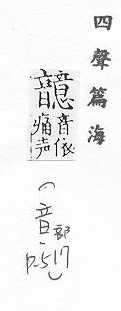 四聲篇海
音依
痛声
(音部
p.517)